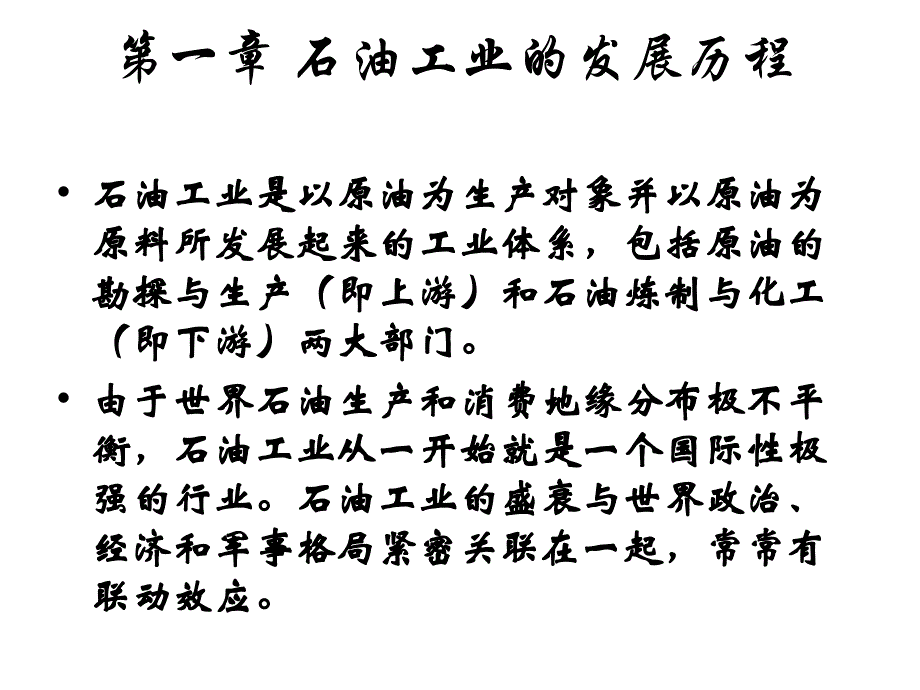 第一章 石油工业的发展历程
• 石油工业是以原油为生产对象并以原油为
原料所发展起来的工业体系，包括原油的
勘探与生产（即上游）和石油炼制与化工
（即下游）两大部门。
• 由于世界石油生产和消费地缘分布极不平
衡，石油工业从一开始就是一个国际性极
强的行业。石油工业的盛衰与世界政治、
经济和军事格局紧密关联在一起，常常有
联动效应。